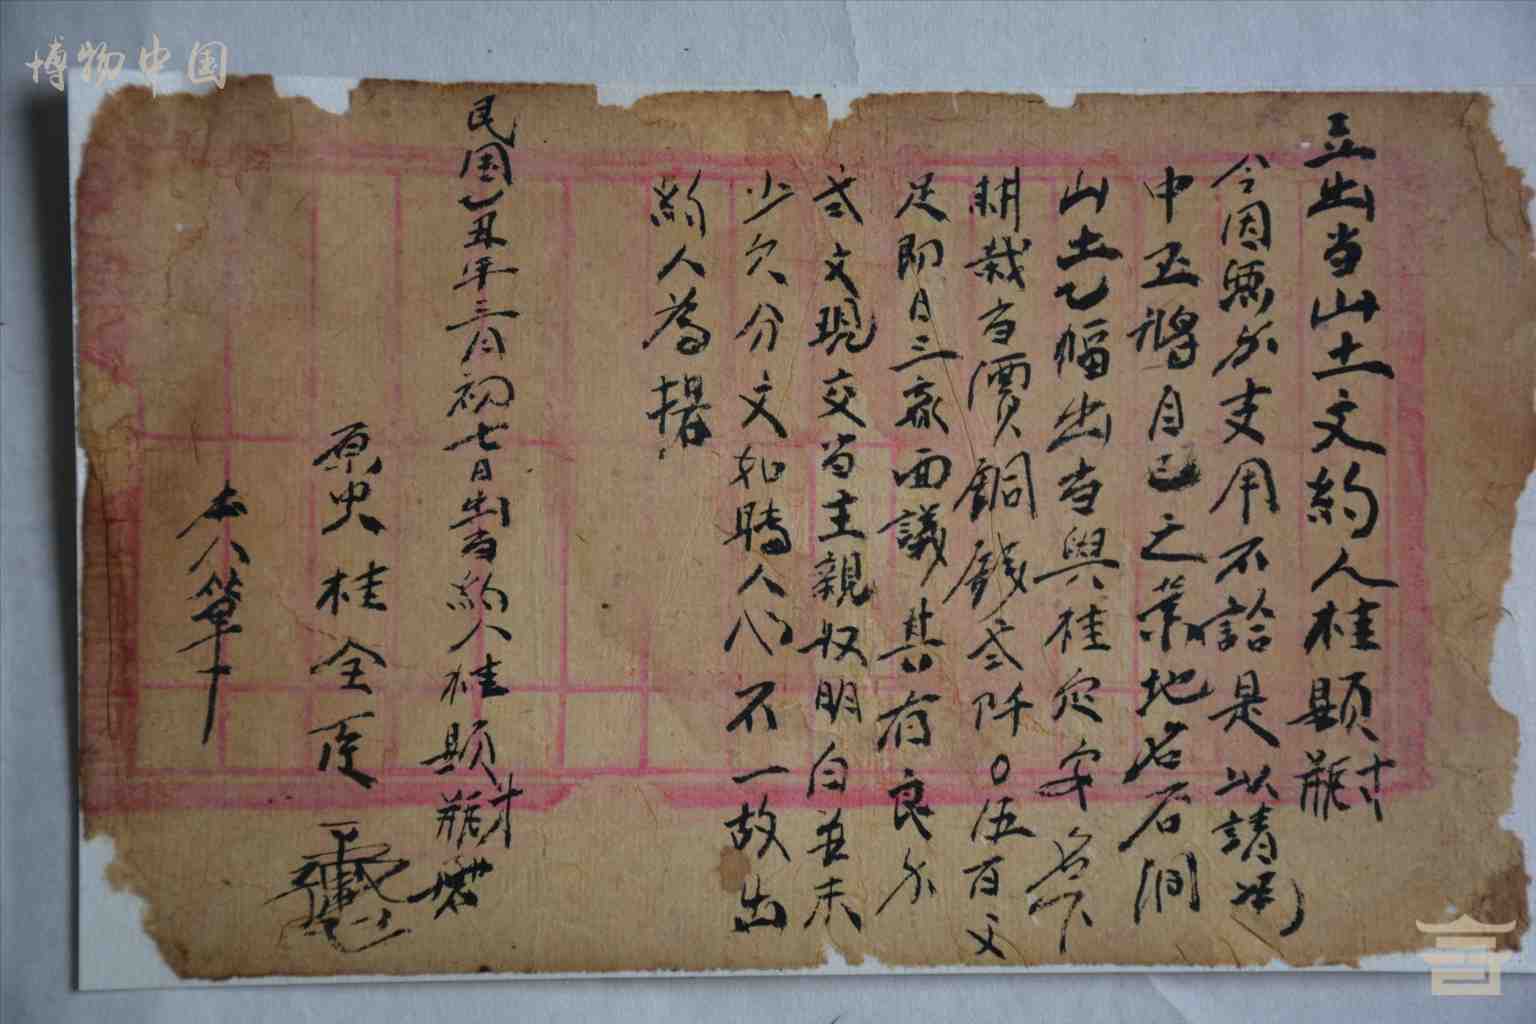 博物中国
立出当山土文約人桂顕瓶
今因無分支用不諭是以請憑
中正將自己之業地名石澗
山土乙幅出当與桂定安名下
耕栽当價銅錢叁阡〇伍百文
足即日三家面議其有良分
叁文現交当主親奴明白並未
少欠分文如賭人心不一故出
約人為據
民国乙丑年三月初七日出当約人桂顕瓶
原中桂全 
本人筆